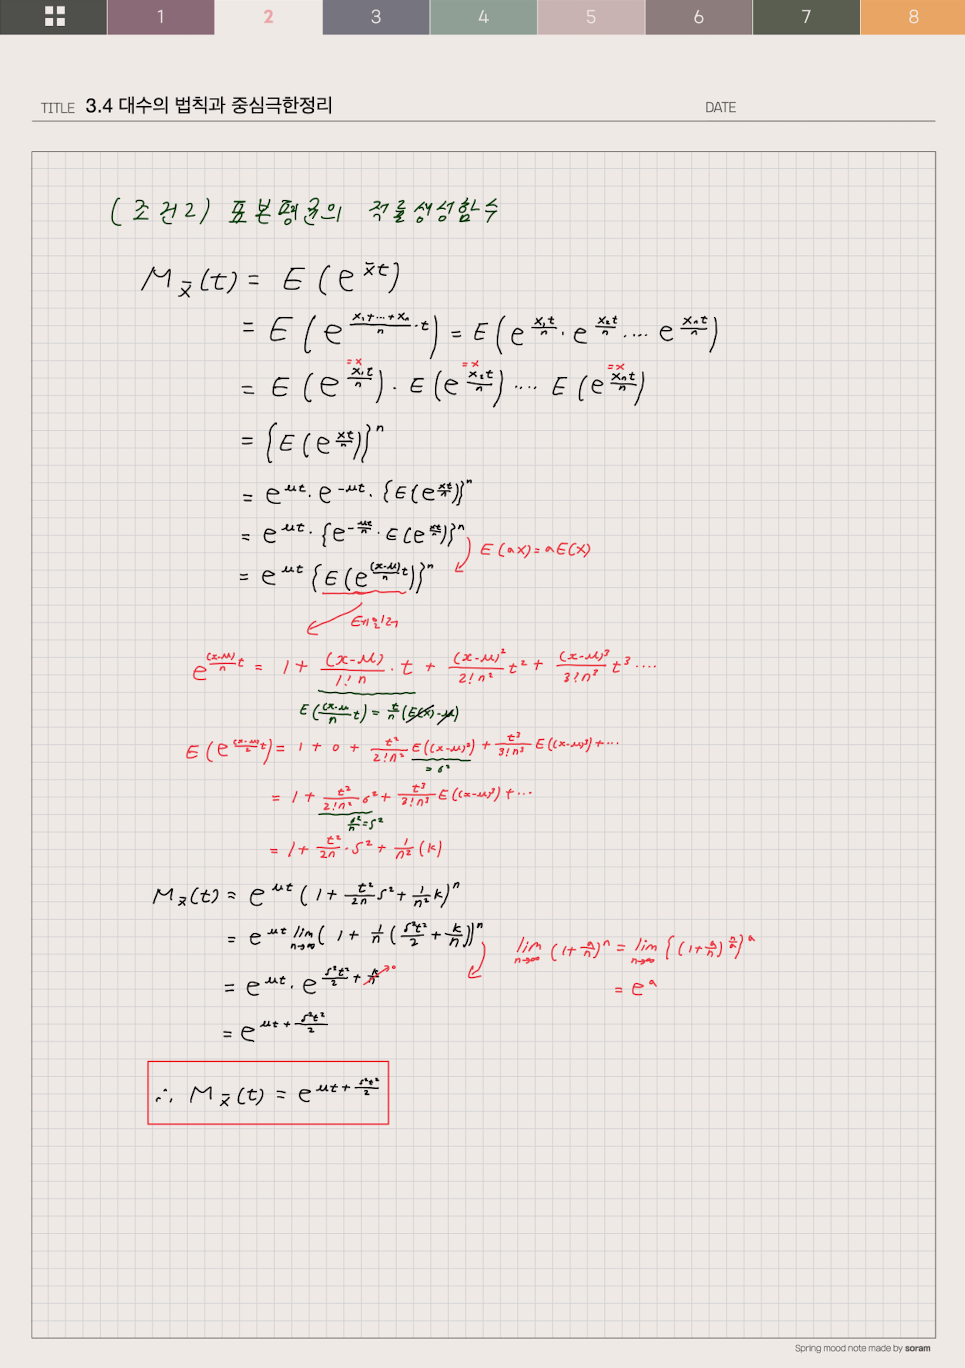 1 2 3 4 5 6 7 8
TITLE 3.4 대수의 법칙과 중심극한정리 DATE
(조건2) 표본평균의 적률생성함수
M_x̄(t) = E(e^{x̄t})
= E(e^{(x₁+…+xₙ)/n · t}) = E(e^{x₁t/n} · e^{x₂t/n} .... e^{xₙt/n})
=x =x =x
= E(e^{x₁t/n}) · E(e^{x₂t/n}) .... E(e^{xₙt/n})
= {E(e^{xt/n})}ⁿ
= e^{μt} · e^{-μt} · {E(e^{xt/n})}ⁿ
= e^{μt} · {e^{-μt/n} · E(e^{xt/n})}ⁿ
E(ax) = aE(x)
= e^{μt} {E(e^{(x-μ)/n t})}ⁿ
테일러
e^{(x-μ)/n t} = 1 + (x-μ)/(1!n) · t + (x-μ)²/(2!n²) t² + (x-μ)³/(3!n³) t³ ....
E((x-μ)/n t) = t/n (E(x)-μ)
E(e^{(x-μ)/n t}) = 1 + 0 + t²/(2!n²) E((x-μ)²) + t³/(3!n³) E((x-μ)³) + ...
= σ²
= 1 + t²/(2!n²) σ² + t³/(3!n³) E((x-μ)³) + ...
σ²/n = s²
= 1 + t²/2n · s² + 1/n² (k)
M_x̄(t) = e^{μt} (1 + t²/2n s² + 1/n² k)ⁿ
= e^{μt} lim_{n→∞} (1 + 1/n (s²t²/2 + k/n))ⁿ
lim_{n→∞} (1 + a/n)ⁿ = lim_{n→∞} {(1 + a/n)^{n/a}}^a
= e^a
= e^{μt} · e^{s²t²/2 + k/n} 0
= e^{μt + s²t²/2}
∴ M_x̄(t) = e^{μt + s²t²/2}
Spring mood note made by soram